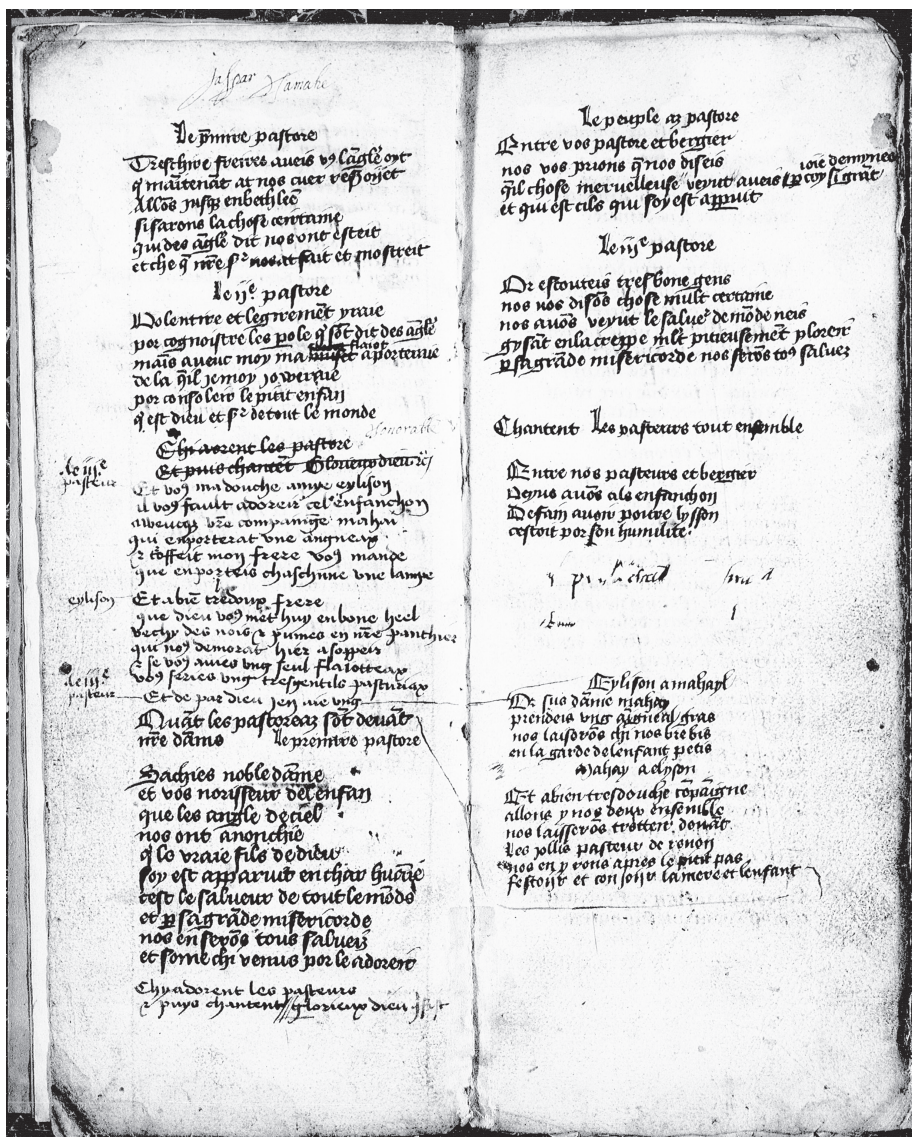 Le pmire pastore
Treschire freires aveis vo9 langle oyt
q maītenāt at nos cuer resioyet
Allōs jusq en bethlee
si sarons la chose certaine
qui des āgle dit nos ont esteit
et che q nre sr nos at fait et mostreit
Le iie pastore
Volentire et legirement yraie
por cognoistre les pole q sōt dit des āgle
mais aveuc moy ma flaiot aporteraie
de la qīl je moy joweraie
por consoleir le pitit enfan
q est dieu et sr de tout le monde
Chi aorent les pastore
Et puis chantēt Glorieux dieu
Le iiie
pasteur
Et vo9 ma douche amye eylison
il vo9 fault adoreir cel enfanchon
aveucq vre companige mahai
qui enporterat vne angneaz
et toffeit mon frere vo9 mande
que enporteis chaschune vne lampe
eylison
Et abiē tredoux frere
que dieu vo9 met huy en bone heel
vechy des nois et pumes en nre panthier
qui no9 demorat hier a soppeir
et se vo9 avies vng seul flaiotteaz
vo9 series vng tresgentils pasturiaz
Le iiie
pasteur
Et de par dieu jen aie vng
Quāt les pastoreaz sōt devāt
nre dame Le premire pastore
Sachies noble dame
et vos norisseur de lenfan
que les angle de ciel
nos ont anonchie
q le vraie fils de dieu
soy est apparuit en char humāe
cest le salueur de tout le monde
et p sa grāde misericorde
nos en serōs tous salueis
et some chi venus por le adoreir
Chy adorent les pasteurs
et puys chantent glorieux dieu
Le peuple az pastore
Entre vos pastore et bergier
nos vos prions q nos diseis
qīl chose mervelleuse veyut aveis p coy si grāt joie demyneis
et qui est cils qui soy est appuit
Le iiie pastore
Or escouteis tres bone gens
nos vos disōs chose mult certaine
nos avōs veyut le salue de mōde neis
gysāt en la creppe mlt piteusement ploreir
p sa grāde misericorde nos serōs to9 salueiz
Chantent Les pasteurs tout ensemble
Entre nos pasteurs et bergier
Venus avōs als enfanchon
De fain avoir povre lysson
cestoit por son humilite
Eylison a mahay
Or sus dame mahay
prendeis vng aigneal gras
nos laisserōs chi nos brebis
en la garde de lenfant petis
Mahay a elyson
Et abien tresdouche cōpaigne
allons y nos deux ensemble
nos laisserōs trotteir devāt
Les jollis pasteur de renon
nos en y rons apres le pitit pas
festoiir et conjoiir la mere et lenfant